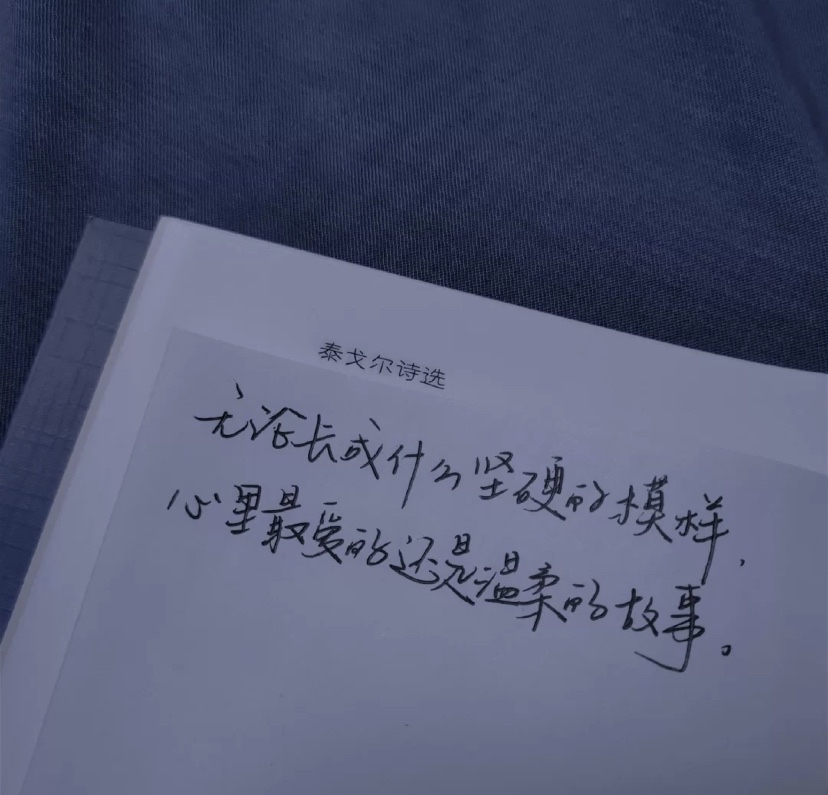 泰戈尔诗选
无论长成什么坚硬的模样，
心里最爱的还是温柔的故事。